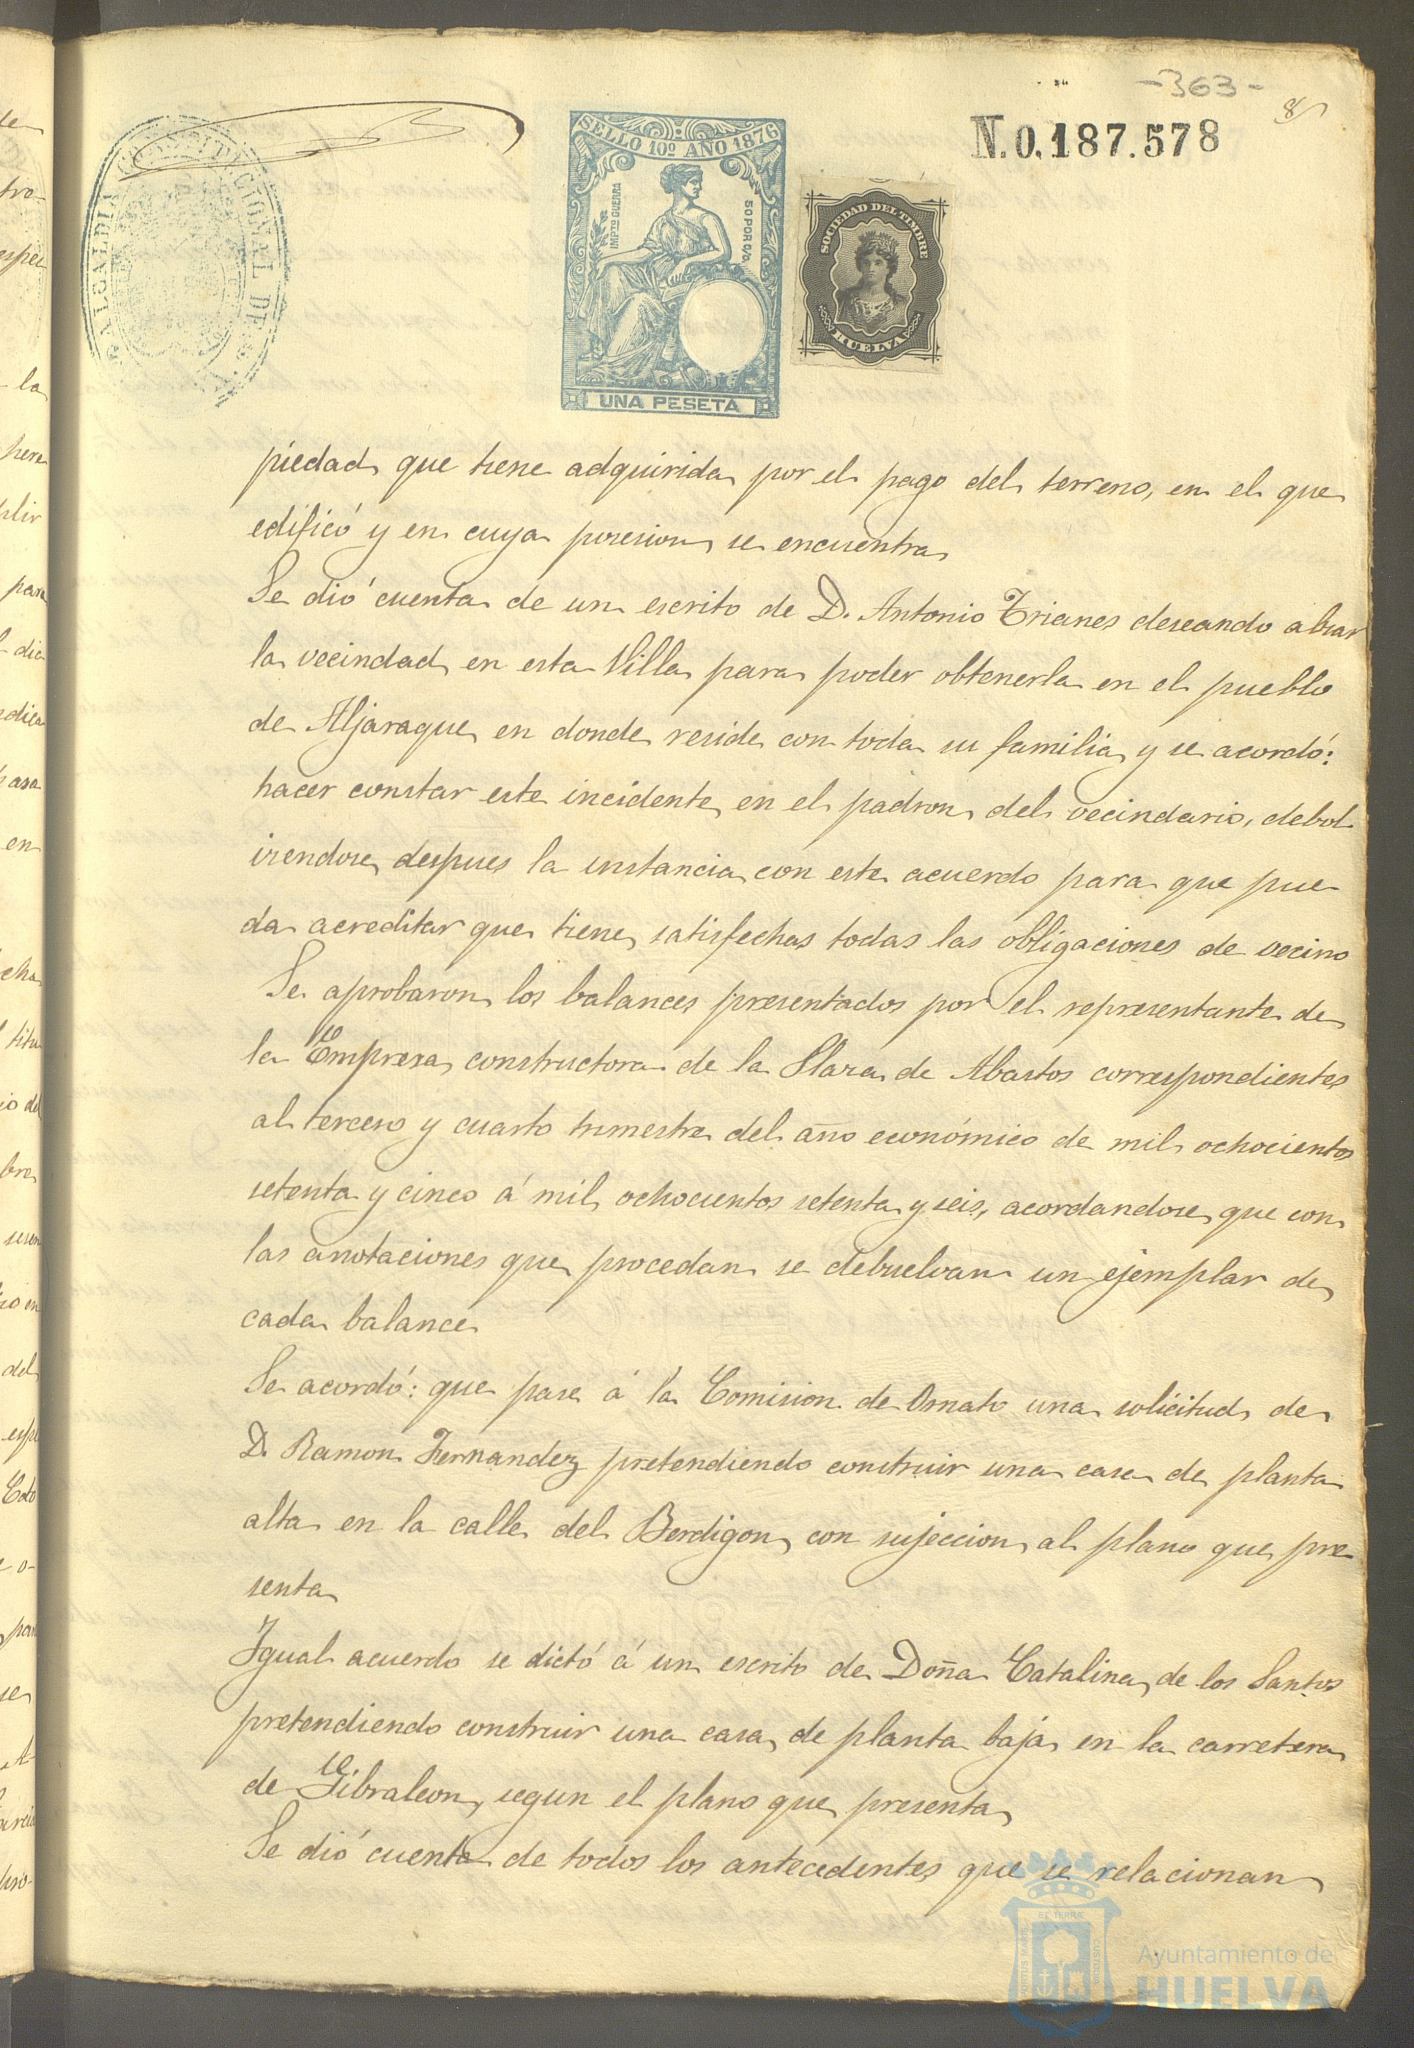 -363-
8
N.0.187.578
ALCALDIA CONSTITUCIONAL DE
SELLO 10º AÑO 1876
IMPTO GUERRA
50 POR 0/0
UNA PESETA
SOCIEDAD DEL TIMBRE
HUELVA
piedad que tiene adquirida por el pago del terreno, en el que
edificó y en cuya posesion se encuentra
Se dió cuenta de un escrito de D. Antonio Trianes deseando alzar
la vecindad en esta Villa para poder obtenerla en el pueblo
de Aljaraque en donde reside con toda su familia y se acordó:
hacer constar este incidente en el padron del vecindario, debol
viendose despues la instancia con este acuerdo para que pue
da acreditar que tiene satisfechas todas las obligaciones de vecino
Se aprobaron los balances presentados por el representante de
la Empresa constructora de la Plaza de Abastos correspondientes
al tercero y cuarto trimestre del año económico de mil ochocientos
setenta y cinco á mil ochocientos setenta y seis, acordandose que con
las anotaciones que procedan se debuelvan un ejemplar de
cada balance
Se acordó: que pase á la Comision de Ornato una solicitud de
D. Ramon Fernandez pretendiendo construir una casa de planta
alta en la calle del Berdigon con sujeccion al plano que pre
senta
Igual acuerdo se dictó á un escrito de Doña Catalina de los Santos
pretendiendo construir una casa de planta baja en la carretera
de Gibraleon, segun el plano que presenta
Se dió cuenta de todos los antecedentes que se relacionan
Ayuntamiento de
HUELVA